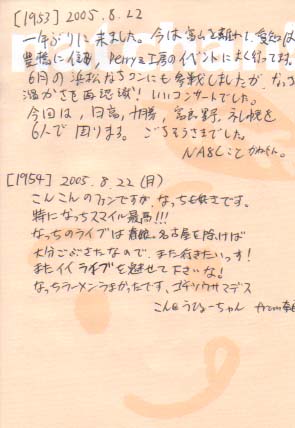 [1953] 2005.8.22
一年ぶりに来ました。今は富山を離れて、愛知は
豊橋に住み、Berryz工房のイベントによく行ってます。
6月の浜松なちコンにも参戦しましたが、なっち
温かさを再認識! いいコンサートでした。
今回は、日高、十勝、富良野、札幌を
6人で回ります。ごちそうさまでした。
NA8Cこと
[1954] 2005.8.22(月)
こんこんのファンですが、なっちも好きです。
特になっちスマイル最高!!!
なっちのライブは 名古屋を除けば
大分ごぶさたなので、また行きたいっす!
またイイライブを魅せて下さいな!
なっちラーメンうまかったです、ゴチソウサマデス
こん@うひょーちゃん from